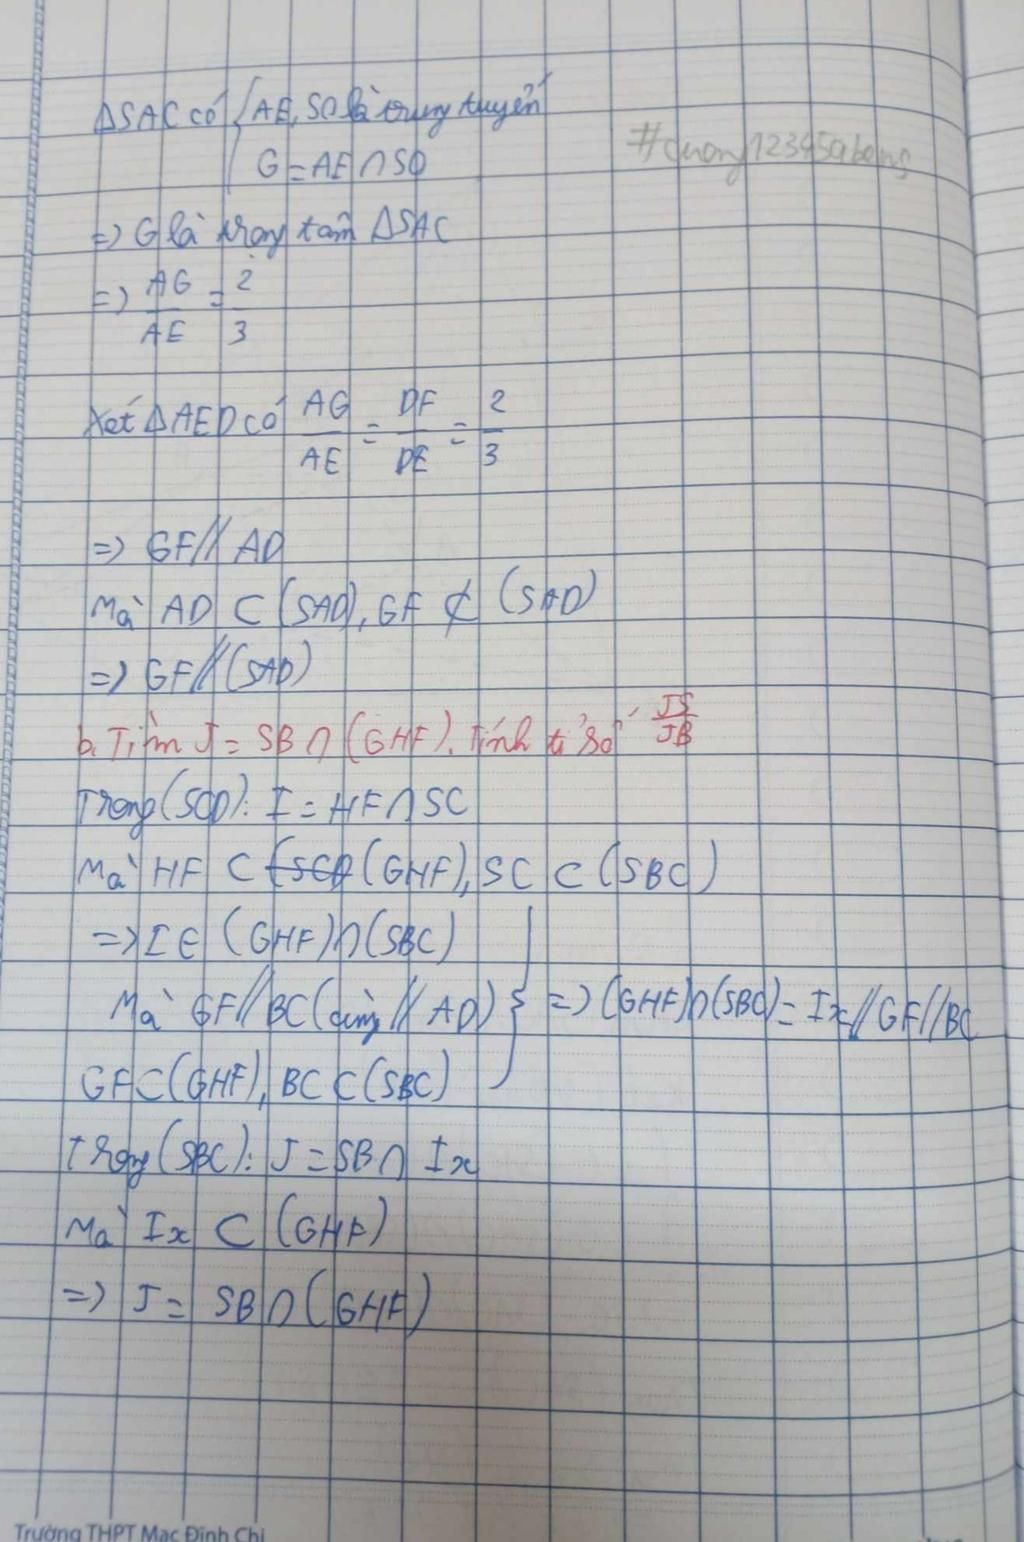 ΔSAC có { AE, SO là trung tuyến
G = AE ∩ SO
#cuong123459
=> G là trọng tâm ΔSAC
=> AG/AE = 2/3
Xét ΔAED có AG/AE = DF/DE = 2/3
=> GF // AD
Mà AD ⊂ (SAD), GF ⊄ (SAD)
=> GF // (SAD)
b. Tìm J = SB ∩ (GHF). Tính tỉ số JS/JB
Trong (SCD): I = HF ∩ SC
Mà HF ⊂ (SCD) (GHF), SC ⊂ (SBC)
=> I ∈ (GHF) ∩ (SBC)
Mà GF // BC (cùng // AD) } => (GHF) ∩ (SBC) = Ix // GF // BC
GF ⊂ (GHF), BC ⊂ (SBC)
Trong (SBC): J = SB ∩ Ix
Mà Ix ⊂ (GHF)
=> J = SB ∩ (GHF)
Trường THPT Mạc Đĩnh Chi